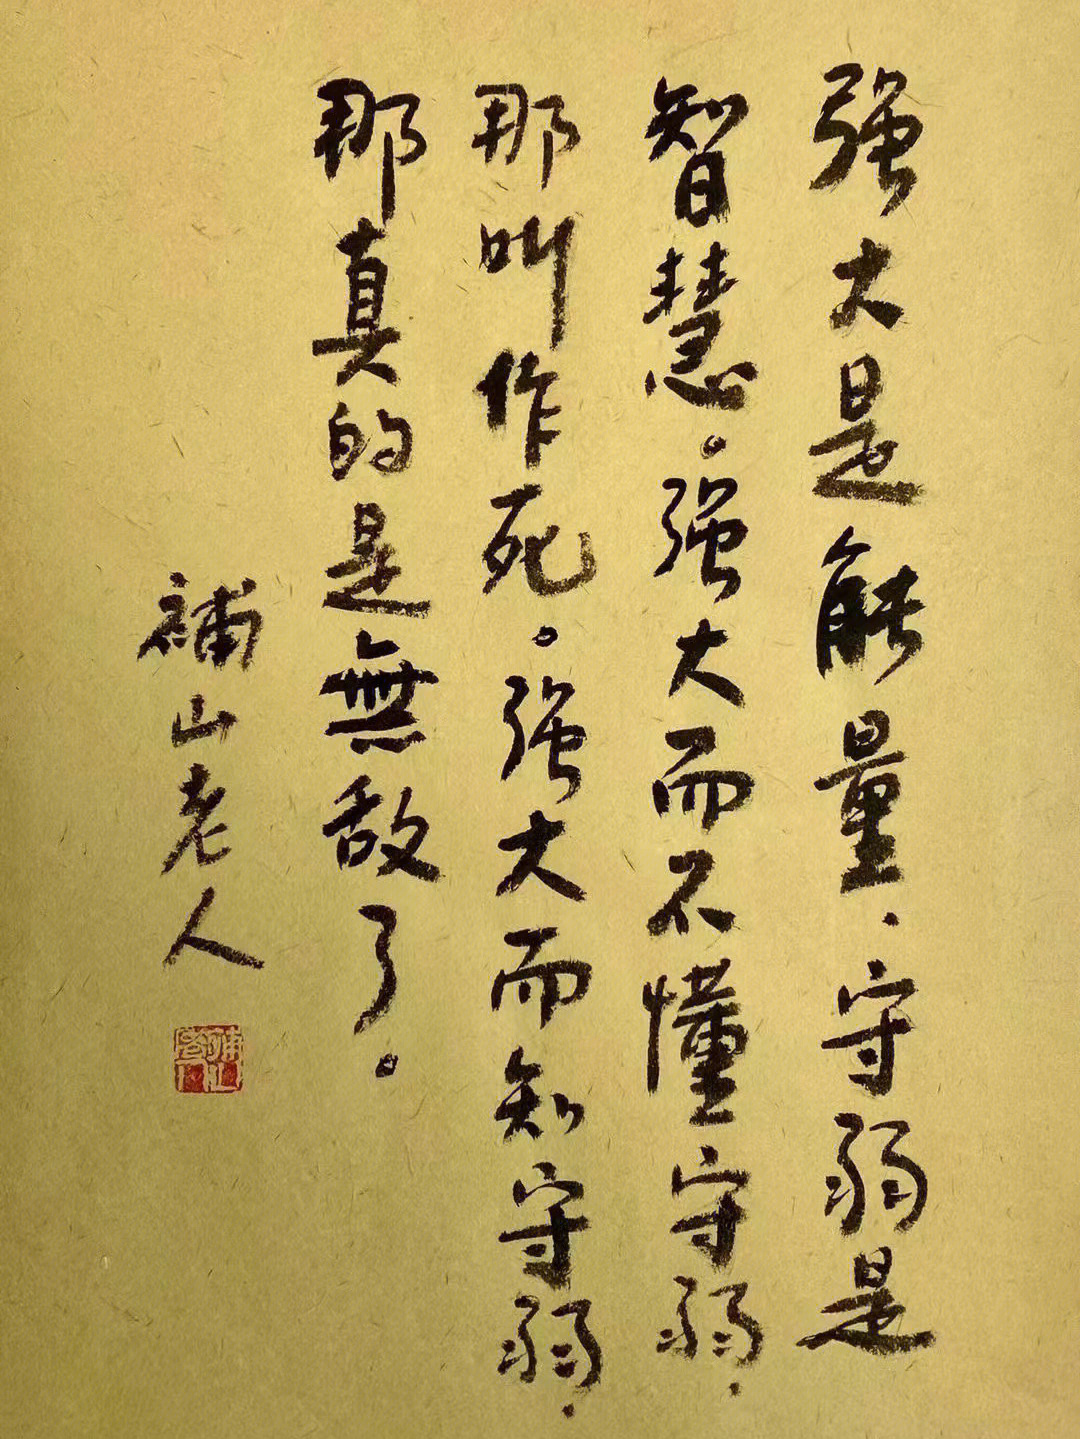 强大是能量.守弱是
智慧。强大而不懂守弱.
那叫作死。强大而知守弱.
那真的是無敌了。
補山老人
補山老人